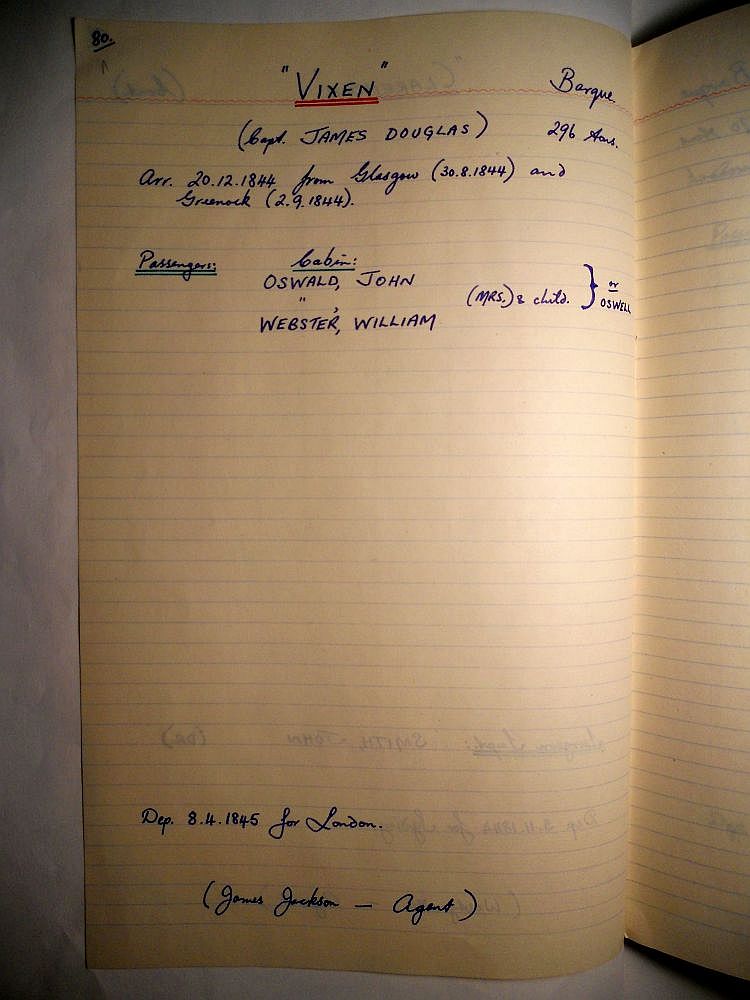 80.
"VIXEN" Barque.
(Capt. JAMES DOUGLAS) 296 tons.
Arr. 20.12.1844 from Glasgow (30.8.1844) and
Greenock (2.9.1844).
Passengers: Cabin:
OSWALD, JOHN
" , (MRS.) & child. } or OSWELL
WEBSTER, WILLIAM
SMITH - JOHN
Dep. 8.4.1845 for London.
(James Jackson — Agent)